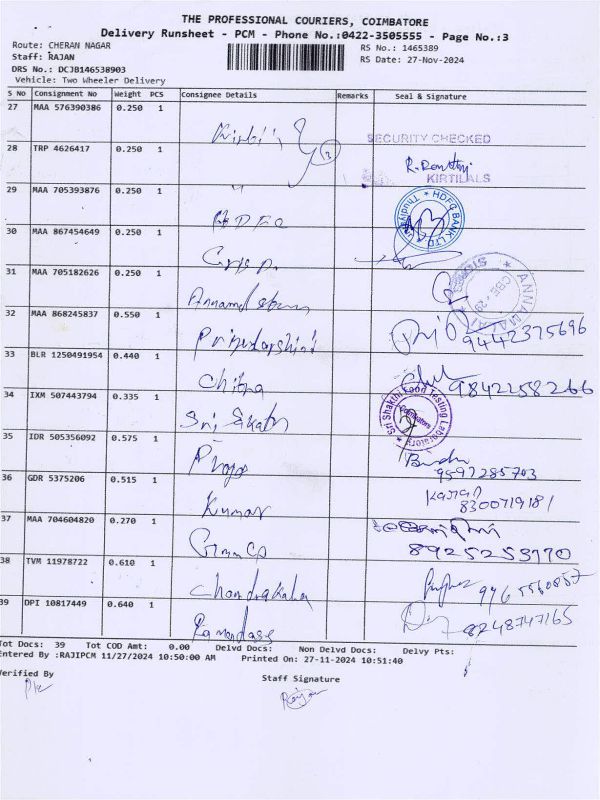 THE PROFESSIONAL COURIERS, COIMBATORE
Delivery Runsheet - PCM - Phone No.:0422-3505555 - Page No.:3
Route: CHERAN NAGAR RS No.: 1465389
Staff: RAJAN RS Date: 27-Nov-2024
DRS No.: DCJB146538903
Vehicle: Two Wheeler Delivery
S No Consignment No Weight PCS Consignee Details Remarks Seal & Signature
27 MAA 576390386 0.250 1
SECURITY CHECKED
28 TRP 4626417 0.250 1
KIRTILALS
29 MAA 705393876 0.250 1 HDFC HDFC BANK LTD
30 MAA 867454649 0.250 1
31 MAA 705182626 0.250 1
32 MAA 868245837 0.550 1 Priyadarshini 9442375696
33 BLR 1250491954 0.440 1 Chitra 9842258266
34 IXM 507443794 0.335 1 Sri Sakthi Sri Shakthi Food Testing Laboratory
35 IDR 505356092 0.575 1
9597285703
36 GDR 5375206 0.515 1 Kumar 8300719181
37 MAA 704604820 0.270 1 8925253170
38 TVM 11978722 0.610 1 Chandrakala
39 DPI 10817449 0.640 1 8248747165
Tot Docs: 39 Tot COD Amt: 0.00 Delvd Docs: Non Delvd Docs: Delvy Pts:
Entered By :RAJIPCM 11/27/2024 10:50:00 AM Printed On: 27-11-2024 10:51:40
Verified By Staff Signature